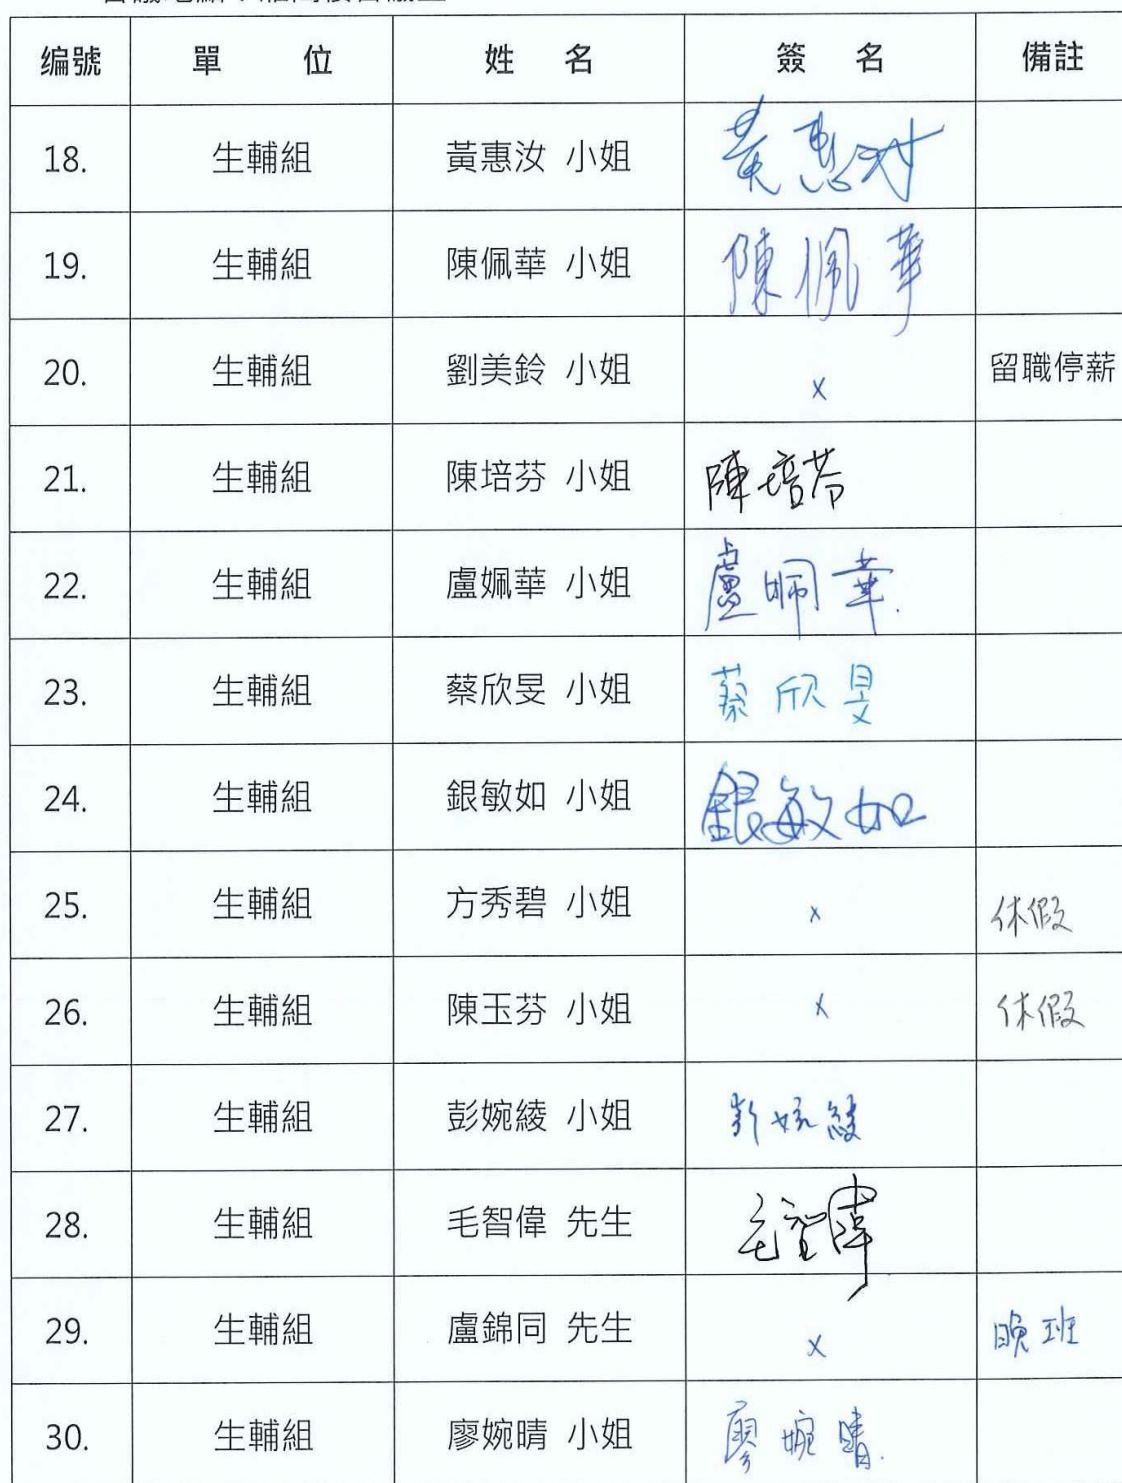 编號 單 位 姓 名 簽 名 備註
18. 生輔組 黃惠汝 小姐 黃惠汝
19. 生輔組 陳佩華 小姐 陳佩華
20. 生輔組 劉美鈴 小姐 x 留職停薪
21. 生輔組 陳培芬 小姐 陳培芬
22. 生輔組 盧姵華 小姐 盧姵華
23. 生輔組 蔡欣旻 小姐 蔡欣旻
24. 生輔組 銀敏如 小姐 銀敏如
25. 生輔組 方秀碧 小姐 x 休假
26. 生輔組 陳玉芬 小姐 x 休假
27. 生輔組 彭婉綾 小姐 彭婉綾
28. 生輔組 毛智偉 先生 毛智偉
29. 生輔組 盧錦同 先生 x 晚班
30. 生輔組 廖婉晴 小姐 廖婉晴